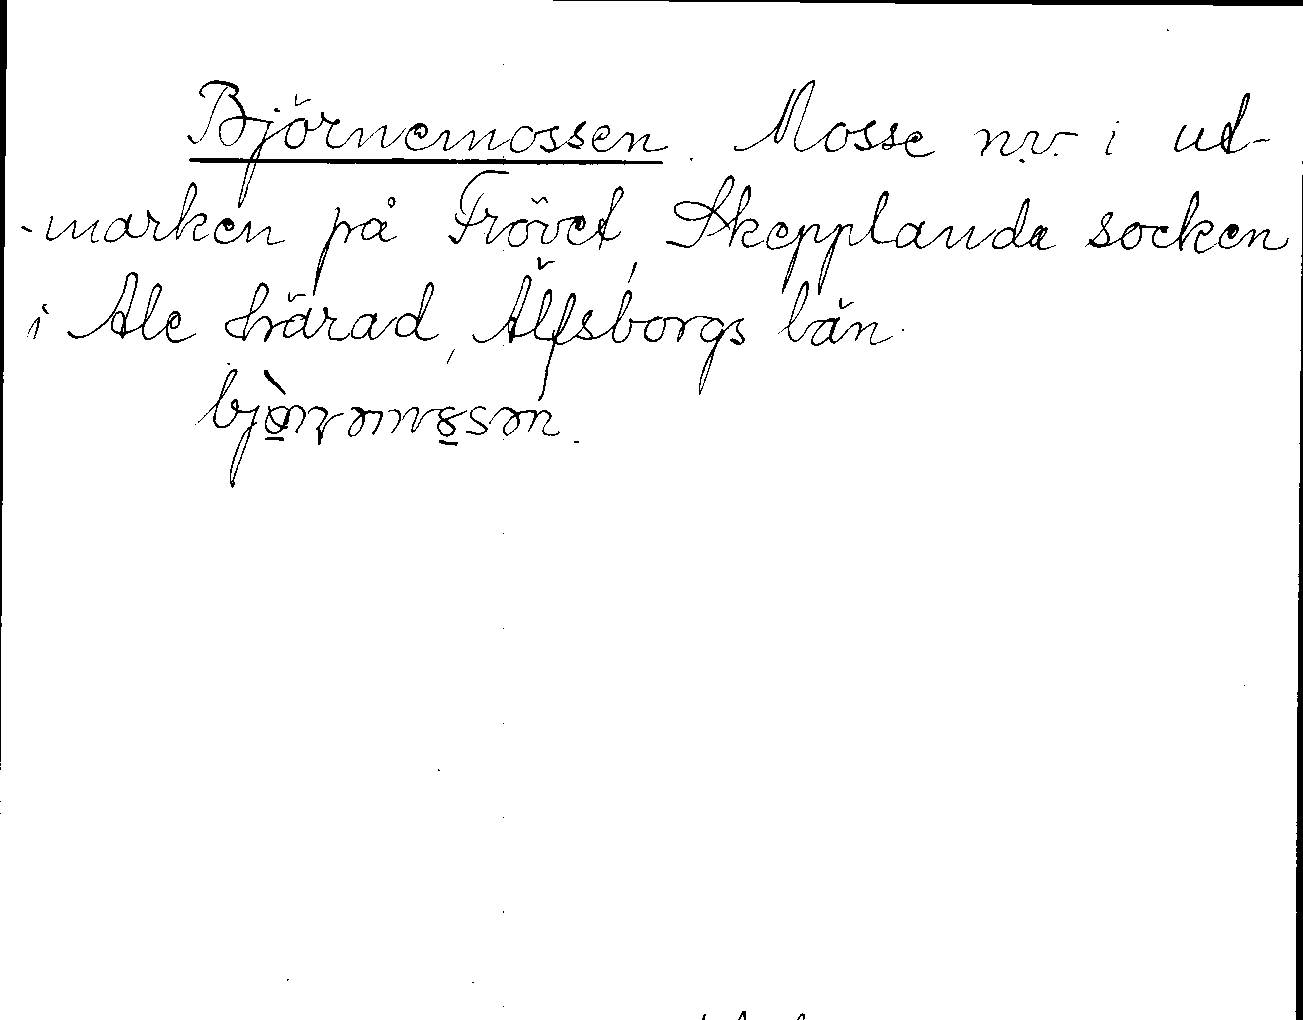 Björnemossen. Mosse n.v. i ut-
-marken på Frövet, Skepplanda socken
i Ale härad, Älfsborgs län.